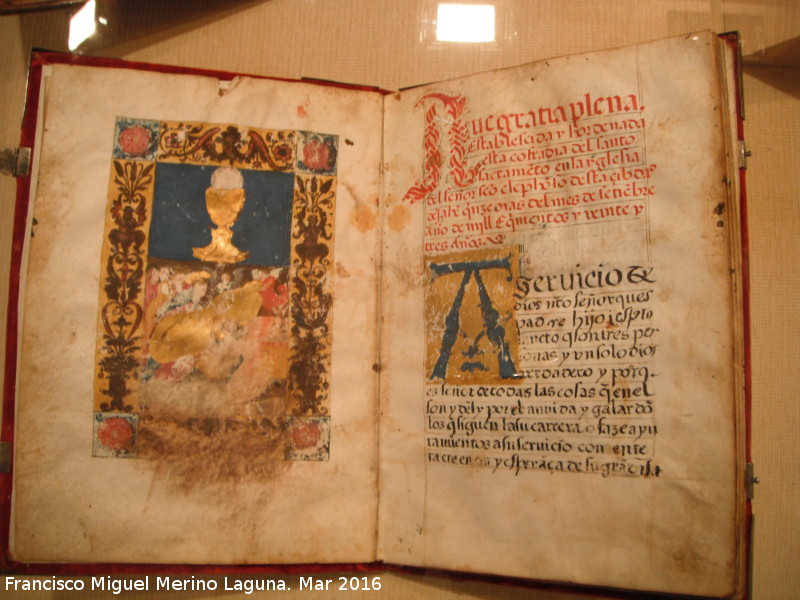 Aue gratia plena,
Establescida y hordenada
esta cofradia del santo
sacramẽto en la yglesia
del señor
de jahẽ quize dias del mes de setiẽbre
año de mill E quiniẽtos y veinte y
tres años.
A seruicio de
dios nr̃o señor ques
padre hijo i espto
sancto q̃ son tres per
sonas y vn solo dios
verdadero y porq̃
es señor de todas las cosas q̃ en el
son y del y por el an vida y galardõ
los q̃ siguen la su carrera o fazẽ ayu
tamientos a su seruicio con ente
ra creencia y esperãça de su
Francisco Miguel Merino Laguna. Mar 2016